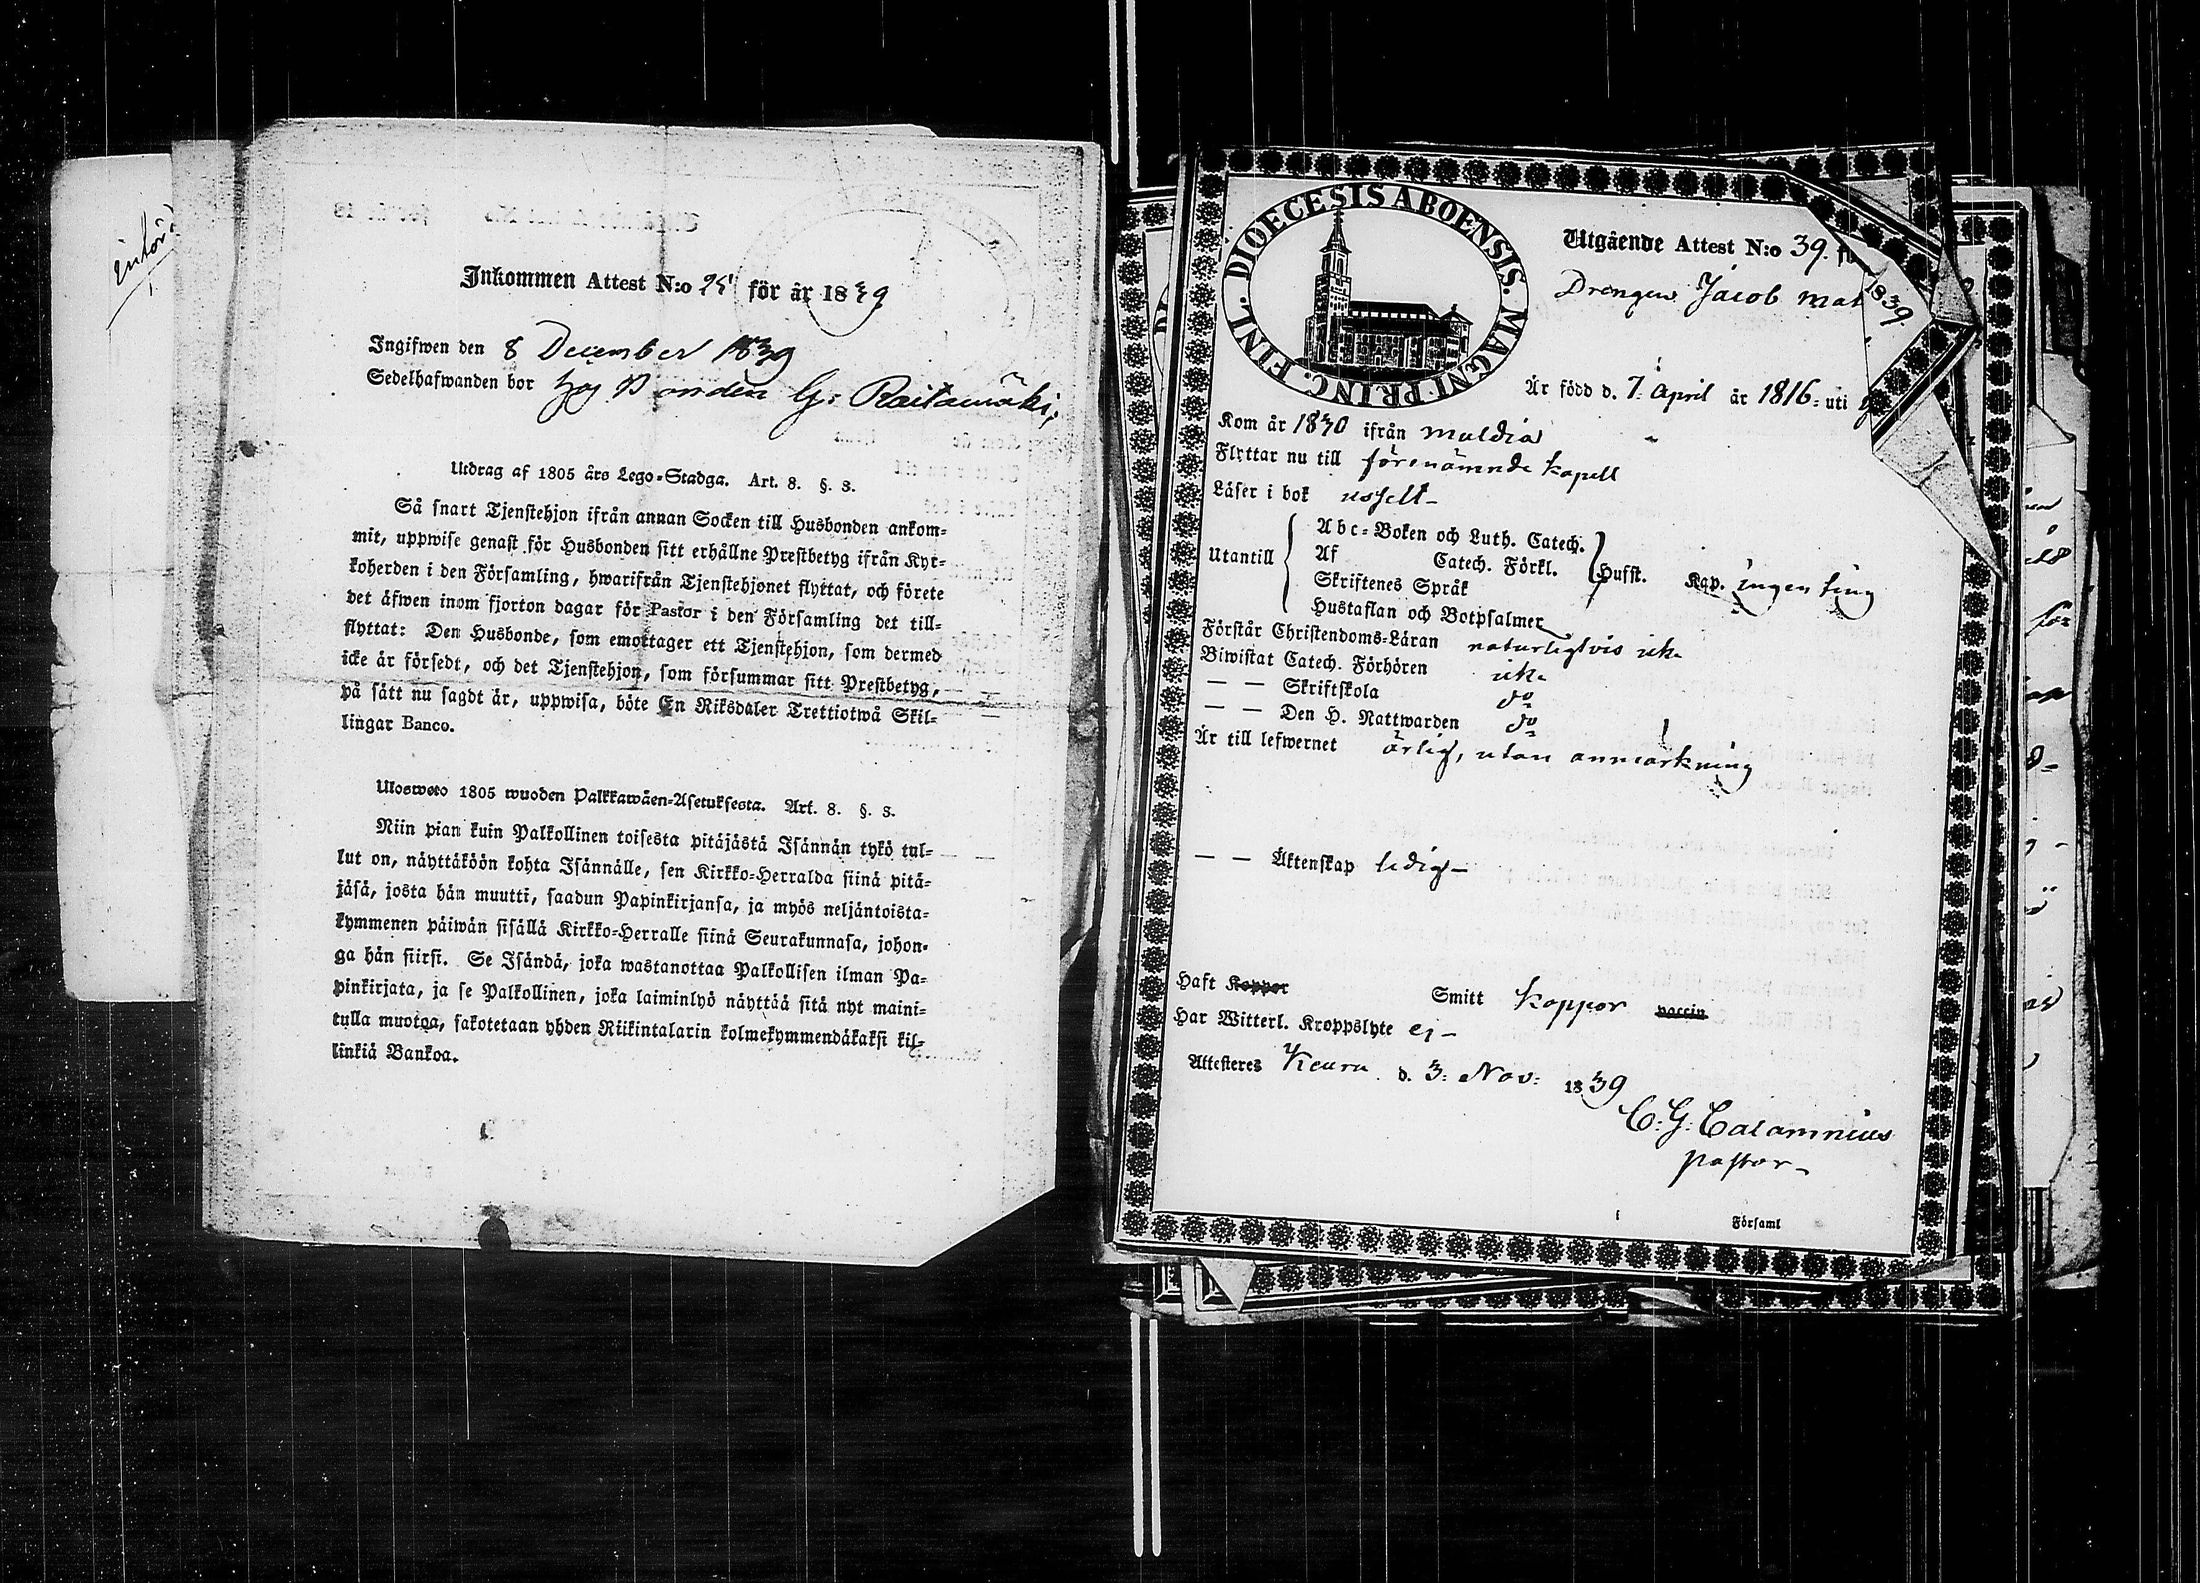 införd
Inkommen Attest N:o 25 för år 1839
Ingifwen den 8 December 1839
Sedelhafwanden bor hos Bonden G: Raitamäki,
Utdrag af 1805 års Lego-Stadga. Art. 8. §. 3.
Så snart Tjenstehjon ifrån annan Socken till Husbonden ankom-
mit, uppwise genast för Husbonden sitt erhållne Prestbetyg ifrån Kyr-
koherden i den Församling, hwarifrån Tjenstehjonet flyttat, och förete
det äfwen inom fjorton dagar för Pastor i den Församling det till-
flyttat: Den Husbonde, som emottager ett Tjenstehjon, som dermed
icke är försedt, och det Tjenstehjon, som försummar sitt Prestbetyg,
på sätt nu sagdt är, uppwisa, böte En Riksdaler Trettiotwå Skil-
lingar Banco.
Ulosweto 1805 wuoden Palkkawäen-Asetuksesta. Art. 8. §. 3.
Niin pian kuin Palkollinen toisesta pitäjästä Isännän tykö tul-
lut on, näyttäköön kohta Isännälle, sen Kirkko-Herralda siinä pitä-
jäsä, josta hän muutti, saadun Papinkirjansa, ja myös neljäntoista-
kymmenen päiwän sisällä Kirkko-Herralle siinä Seurakunnasa, johon-
ga hän siirsi. Se Isändä, joka wastanottaa Palkollisen ilman Pa-
pinkirjata, ja se Palkollinen, joka laiminlyö näyttää sitä nyt maini-
tulla muotoa, sakotetaan yhden Riikintalarin kolmekymmendäkaksi kil-
linkiä Bankoa.
DIOECESIS ABOENSIS. MAGNI PRINC. FINL.
Utgående Attest N:o 39. fö
1839.
Drengen Jacob Mat
Är född d. 7: April år 1816: uti
Kom år 1830 ifrån Muldia
Flyttar nu till förenämnde kapell
Läser i bok usselt
Utantill
Abc-Boken och Luth. Catech.
Af Catech. Förkl.
Skriftenes Språk
Hustaflan och Botpsalmer
Hufst. Kap. ingenting
Förstår Christendoms-Läran naturligtvis icke
Biwistat Catech. Förhören icke
— — Skriftskola do
— — Den H. Nattwarden do
Är till lefwernet ärlig, utan anmärkning
— — Äktenskap ledig
Haft Koppor Smitt koppor vaccin
Har Witterl. Kroppslyte ej
Attesteres Keuru d. 3: Nov: 1839
C: G: Calamnius
pastor
Församl